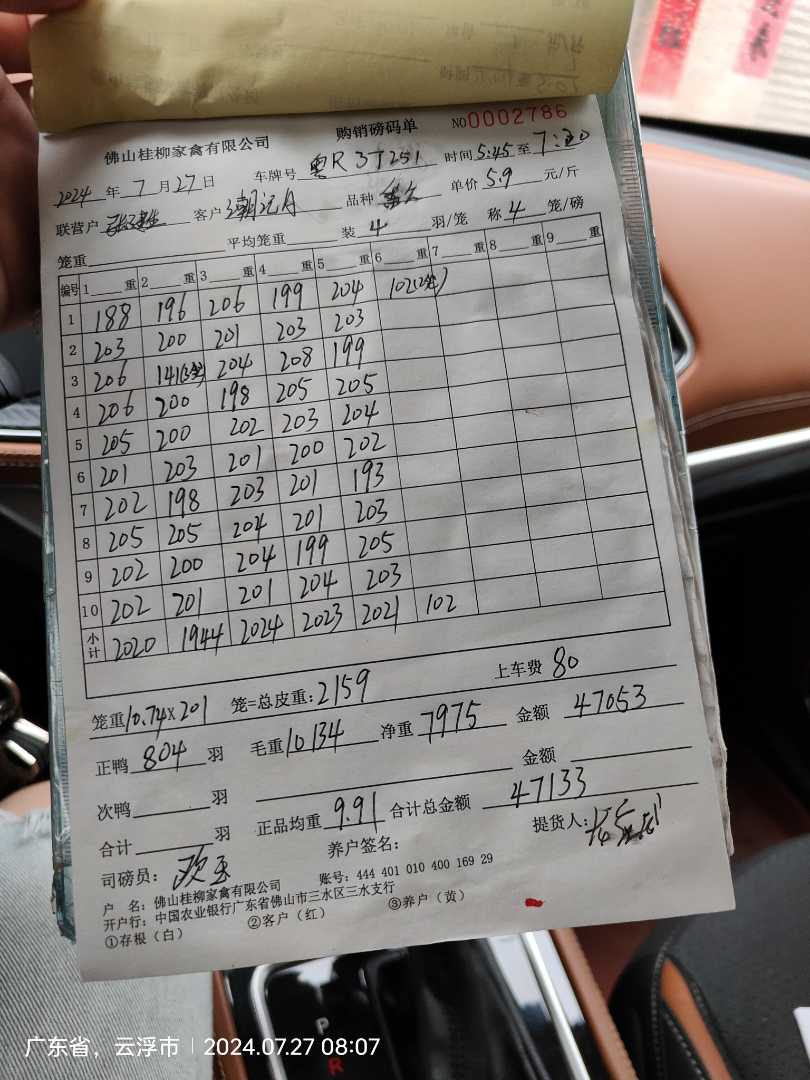 佛山桂柳家禽有限公司 购销磅码单 NO0002786
2024年7月27日 车牌号 粤R3T251 时间5:45至7:20
联营户 客户 品种 单价5.9元/斤
笼重 平均笼重 装4羽/笼 称4笼/磅
编号 1重 2重 3重 4重 5重 6重 7重 8重 9重
1 188 196 206 199 204 102(2笼)
2 203 200 201 203 203
3 206 141(3笼) 204 208 199
4 206 200 198 205 205
5 205 200 202 203 204
6 201 203 201 200 202
7 202 198 203 201 193
8 205 205 204 201 203
9 202 200 204 199 205
10 202 201 201 204 203
小计 2020 1944 2024 2023 2021 102
笼重10.74x201笼=总皮重:2159 上车费80
正鸭804羽 毛重10134 净重7975 金额47053
次鸭羽 金额
合计羽 正品均重9.91 合计总金额47133
司磅员: 养户签名: 提货人:
户 名:佛山桂柳家禽有限公司 账号:444 401 010 400 169 29
开户行:中国农业银行广东省佛山市三水区三水支行
①存根(白) ②客户(红) ③养户(黄)
P
R
广东省，云浮市 | 2024.07.27 08:07